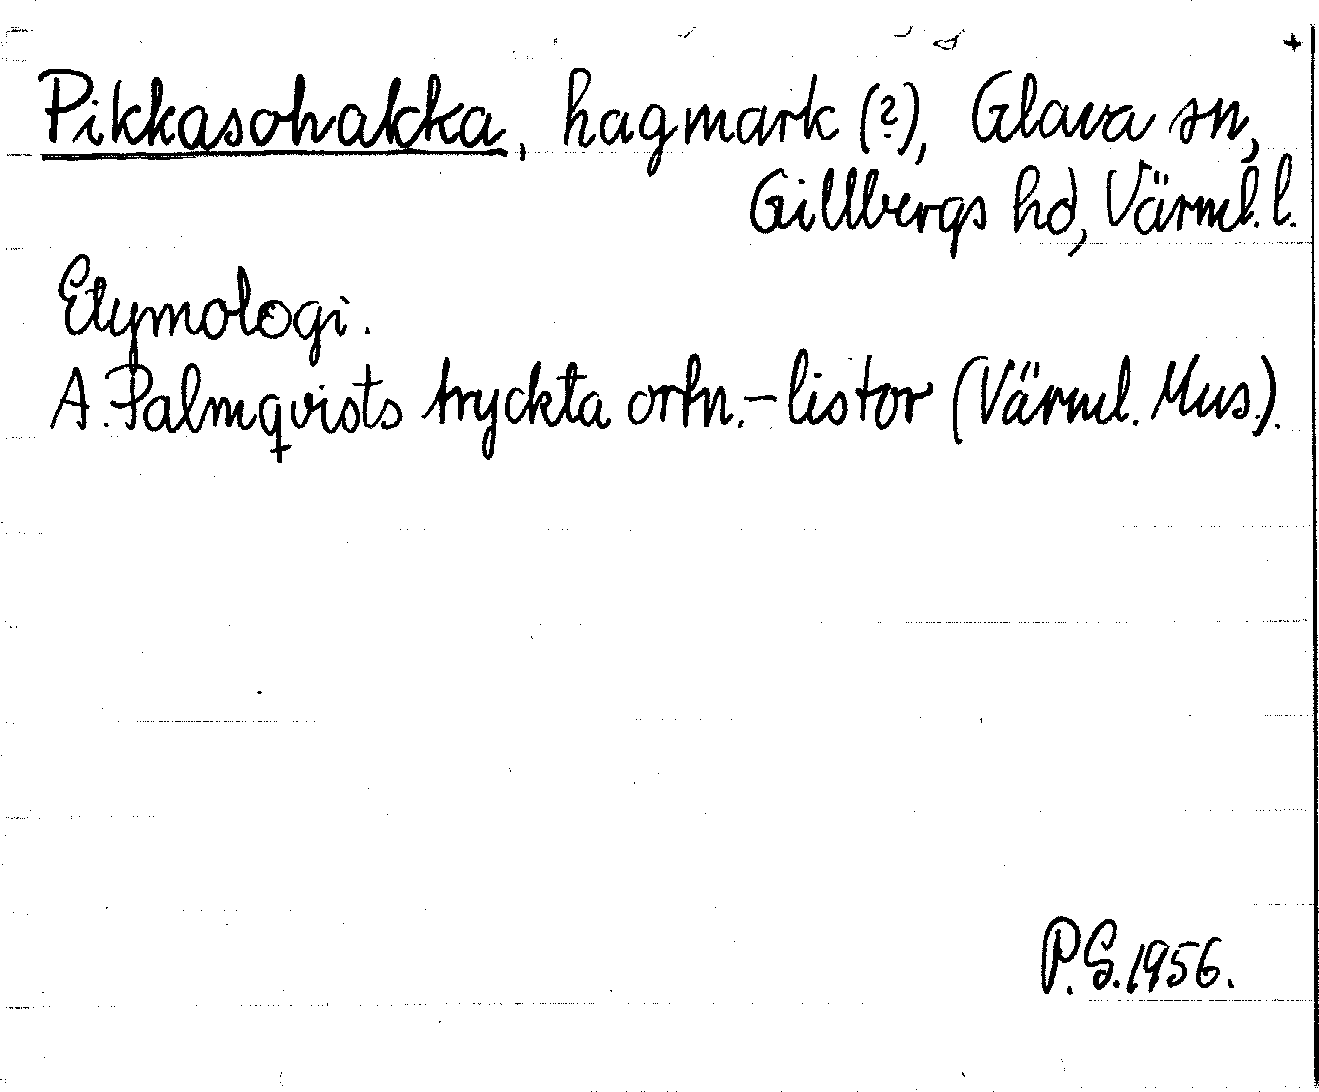 Pikkasohakka, hagmark (?), Glava sn,
Gillbergs hd, Värml. l.
Etymologi.
A. Palmqvists tryckta ortn.-listor (Värml. Mus.).
P.G. 1956.